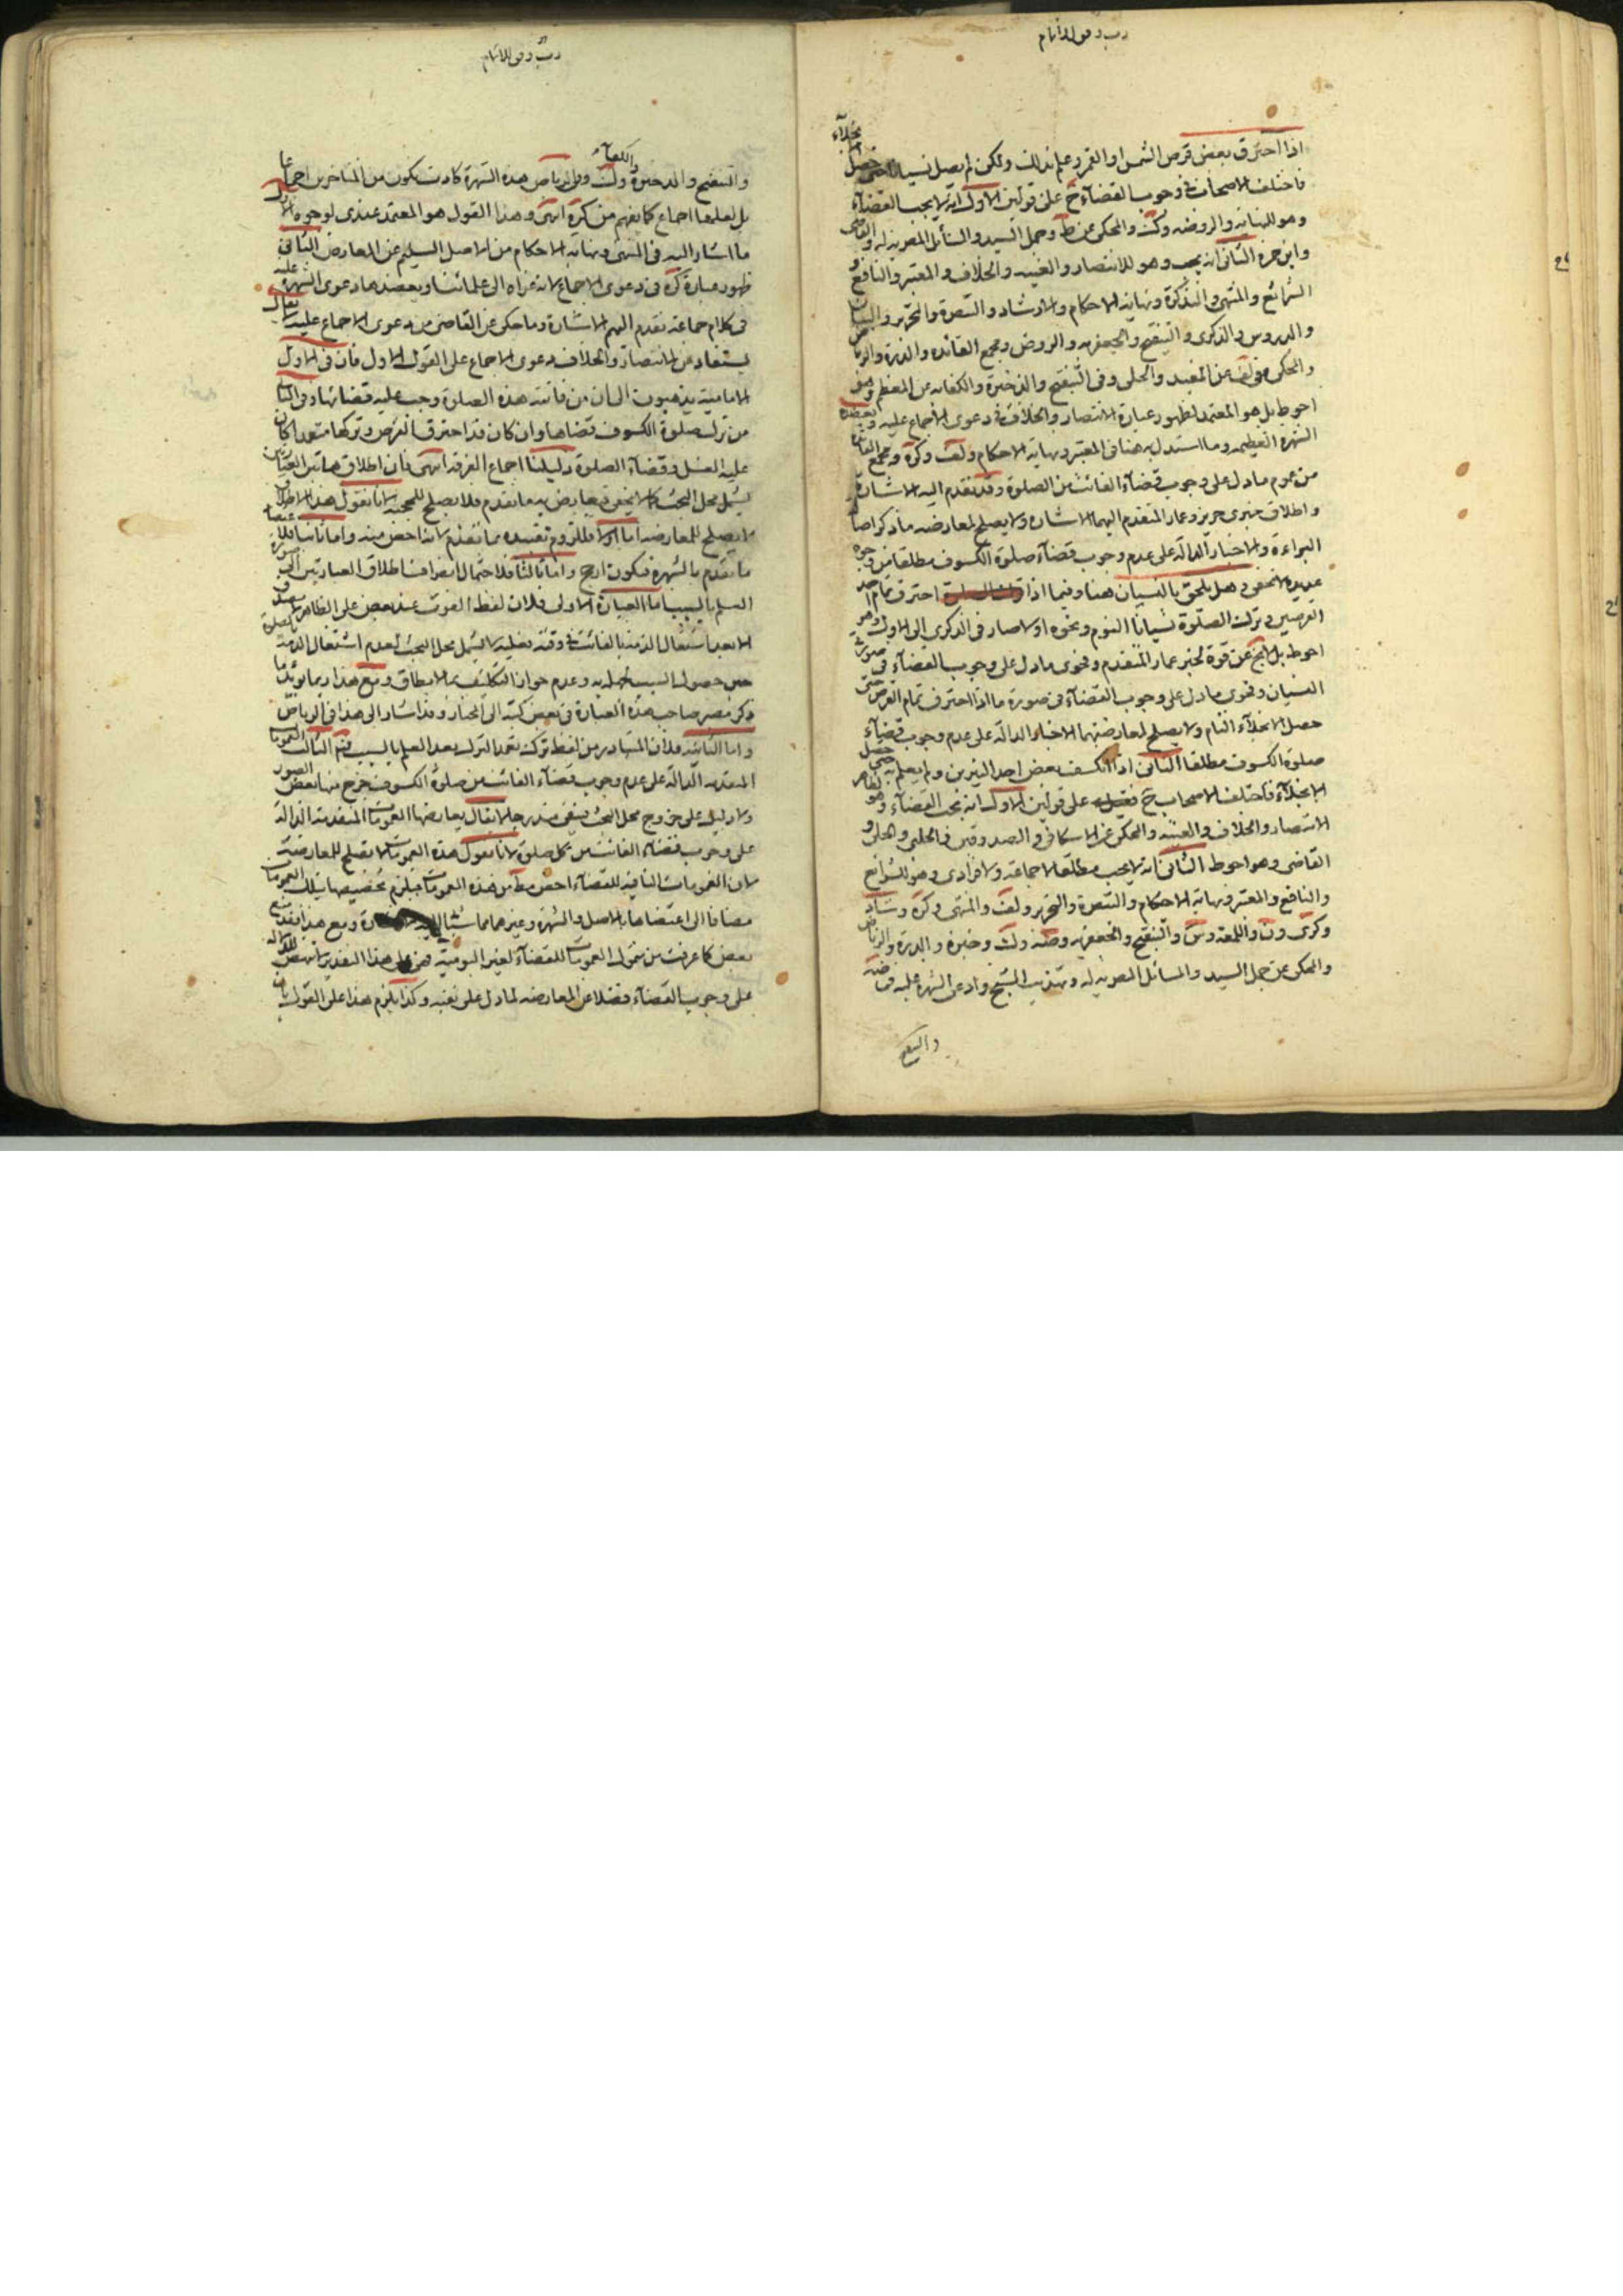 رب وفق للاتمام
اذا احترق بعض قرص الشمس او القمر وعلم بذلك ولكن لم يصل نسيانا حتى حصل الانجلاء
فاختلف الاصحاب في وجوب القضاء ح على قولين الاول انه لا يجب القضاء
وهو للنهاية والروضه وكت والمحكى عن ط وجمل السيد والمسائل المصريه له والقاضى
وابن حمزه الثانى انه يجب وهو للانتصار والغنيه والخلاف والمعتبر والنافع و
الشرائع والمنتهى والتذكرة ونهاية الاحكام والارشاد والتبصرة والتحرير والبيان
والدروس والذكرى والتنقيح والجعفريه والروض ومجمع الفائده والذخيرة والرياض
والمحكى في لف عن المفيد والحلى وفى التنقيح والذخيرة والكفايه عن المعظم وهو
احوط بل هو المعتمد لظهور عبارة الانتصار والخلاف في دعوى الاجماع عليه ويعضده
الشهرة العظيمه وما استدل به هنا فى المعتبر ونهاية الاحكام ولف وكره ومجمع الفائدة
من عموم ما دل على وجوب قضاء الفائت من الصلوة وقد تقدم اليه الاشارة
واطلاق خبرى حريز وعمار المتقدم اليهما الاشاره ولا يصلح لمعارضه ما ذكر اصالة
البراءة والاخبار الدالة على عدم وجوب قضاء صلوة الكسوف مطلقا من وجوه
عديده لا تخفى وهل يلحق بالنسيان هنا وفيما اذا احترق تمام احد
القرصين وترك الصلوة نسيانا النوم ونحوه اولا صار فى الذكرى الى الاول وهو
احوط بل لا يخ عن قوة لخبر عمار المتقدم وفحوى ما دل على وجوب القضاء فى صورة
النسيان وفحوى ما دل على وجوب القضاء فى صورة ما اذا احترق تمام القرص حتى
حصل الانجلاء التام ولا يصلح لمعارضتهما الاخبار الدالة على عدم وجوب قضاء
صلوة الكسوف مطلقا الثانى اذا انكسف بعض احد النيرين ولم يعلم به حتى حصل
الانجلاء فاختلف الاصحاب ح على قولين الاول انه يجب القضاء وهو لظاهر
الانتصار والخلاف والغنيه والمحكى عن الاسكافى والصدوقين والحلبى والحلى و
القاضى وهو احوط الثانى انه لا يجب مطلقا لا جماعة ولا فرادى وهو للشرائع
والنافع والمعتبر ونهاية الاحكام والتبصرة والتحرير ولف والمنتهى وكره وشاد
وكرى ون واللمعة وس والتنقيح والجعفريه وضه ولك وخيره والدرة والرياض
والمحكى عن جمل السيد والمسائل المصريه له وتهذيب الشيخ وادعى الشهرة عليه فى ضه
والتنقيح
رب وفق للاتمام
والتنقيح والذخيرة والكفاية ولك وفى الرياض هذه الشهرة كادت تكون من المتاخرين اجماعا
بل لعلها اجماع كما يفهم من كره انتهى وهذا القول هو المعتمد عندى لوجوه الاول
ما اشار اليه فى المنتهى ونهاية الاحكام من الاصل السليم عن المعارض الثانى
ظهور عبارة كره فى دعوى الاجماع لانه عزاه الى علمائنا ويعضدها دعوى الشهرة عليه
فى كلام جماعة تقدم اليهم الاشارة وما حكى عن القاضى من دعوى الاجماع عليه لا يقال
يستفاد من الانتصار والخلاف دعوى الاجماع على القول الاول فان فى الاول
الامامية يذهبون الى ان من فاتته هذه الصلوة وجب عليه قضائها وفى الثانى
من ترك صلوة الكسوف قضاها وان كان قد احترق القرص وتركها متعمدا كان
عليه الغسل وقضاء الصلوة دليلنا اجماع الفرقه انتهى فان اطلاق هاتين العبارتين
يشمل محل البحث كما لا يخفى فيعارض به ما تقدم فلا يصلح للحجية لانا نقول هذا الاطلاق
لا يصلح للمعارضه اما اولا فللزوم تقييده بما تقدم لانه اخص منه واما ثانيا فلاعتضاد
ما تقدم بالشهره فيكون ارجح واما ثالثا فلاحتمال انصراف اطلاق العبارتين الى صورة
العلم بالسبب اما العبارة الاولى فلان لفظ الفوت عند بعض على الظاهر لا يصدق
الا بعد اشتغال الذمة بالفائت فى وقته فعليه لا يشمل محل البحث لعدم اشتغال الذمة بالصلوة
حين حصول السبب لجهله به وعدم جواز التكليف بما لا يطاق ومع هذا ربما يؤيد ما
ذكر مصير صاحب هذه العبارة فى بعض كتبه الى المختار وقد اشار الى هذا فى الرياض
واما الثانيه فلان المتبادر من لفظ ترك تعمد الترك بعد العلم بالسبب فتم الثالث العمومات
المتقدمه الدالة على عدم وجوب قضاء الفائت من صلوة الكسوف خرج منها بعض الصور
ولا دليل على خروج محل البحث فيبقى مندرجا لا يقال يعارضها العمومات المتقدمة الدالة
على وجوب قضاء الفائت من كل صلوة لانا نقول هذه العمومات لا تصلح للمعارضة
لان العمومات النافيه للقضاء اخص مط من هذه العمومات فيلزم تخصيصها بتلك العمومات
مضافا الى اعتضاها بالاصل والشهرة وغيرهما مما ومع هذا فقد منع
بعض كما عرفت من شمول العمومات للقضاء لغير اليومية فعلى هذا التقدير لا تنهض للدلالة
على وجوب القضاء فضلا عن المعارضه لما دل على نفيه وكذا يلزم هذا على القول بان